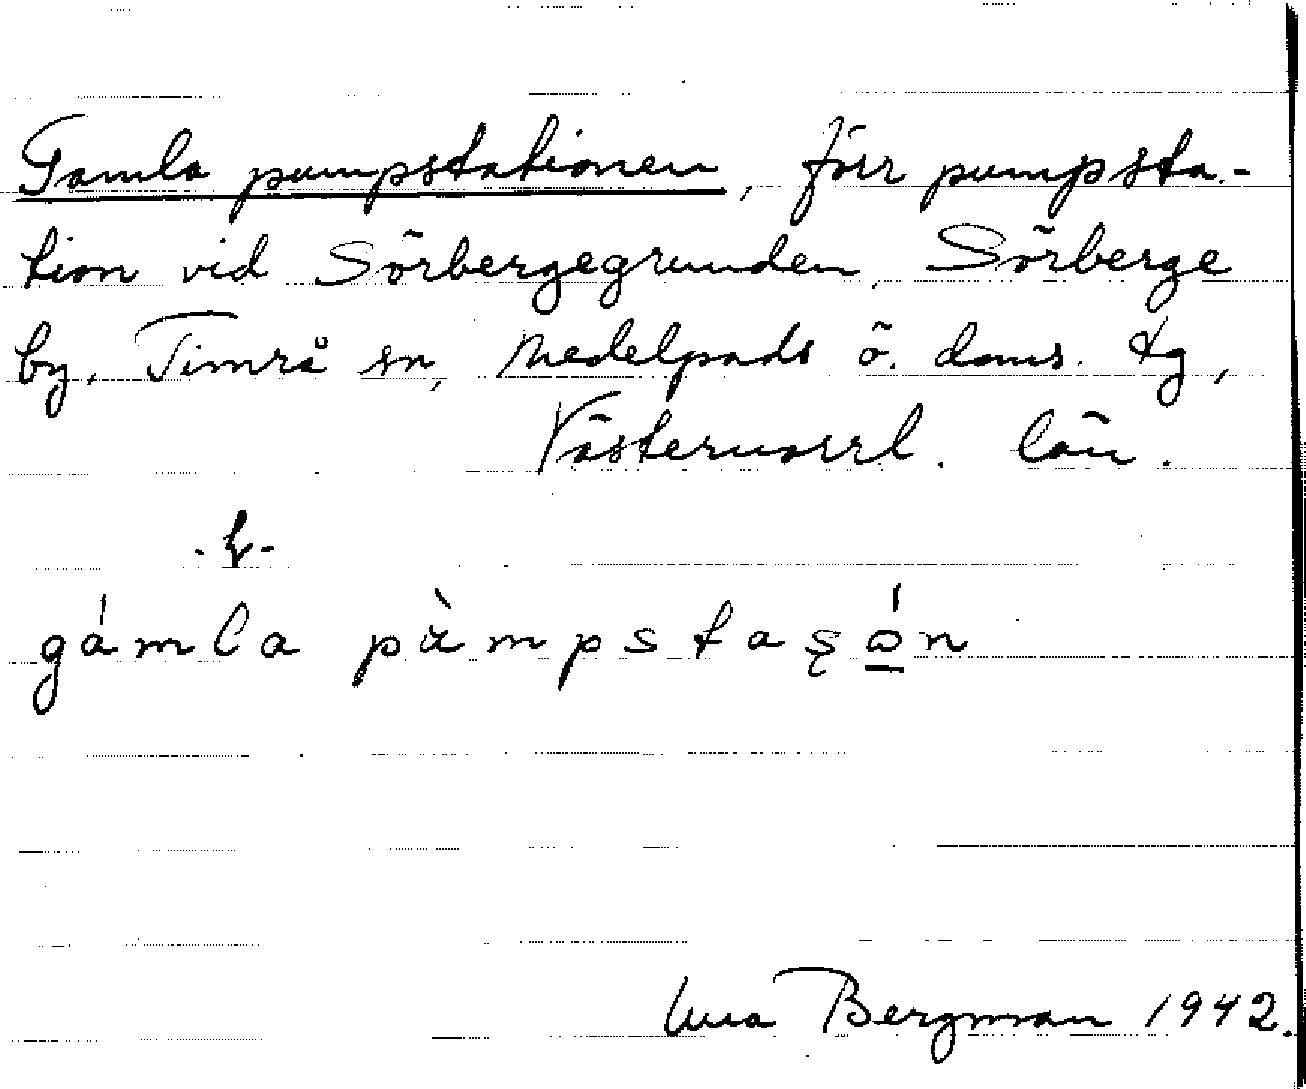 Gamla pumpstationen, förr pumpsta-
tion vid Sörbergegrunden, Sörberge
by, Timrå sn, Medelpads ö. doms. tg,
Västernorrl. län.
gámla pùmpstaşǫ́n
Bergman 1942.